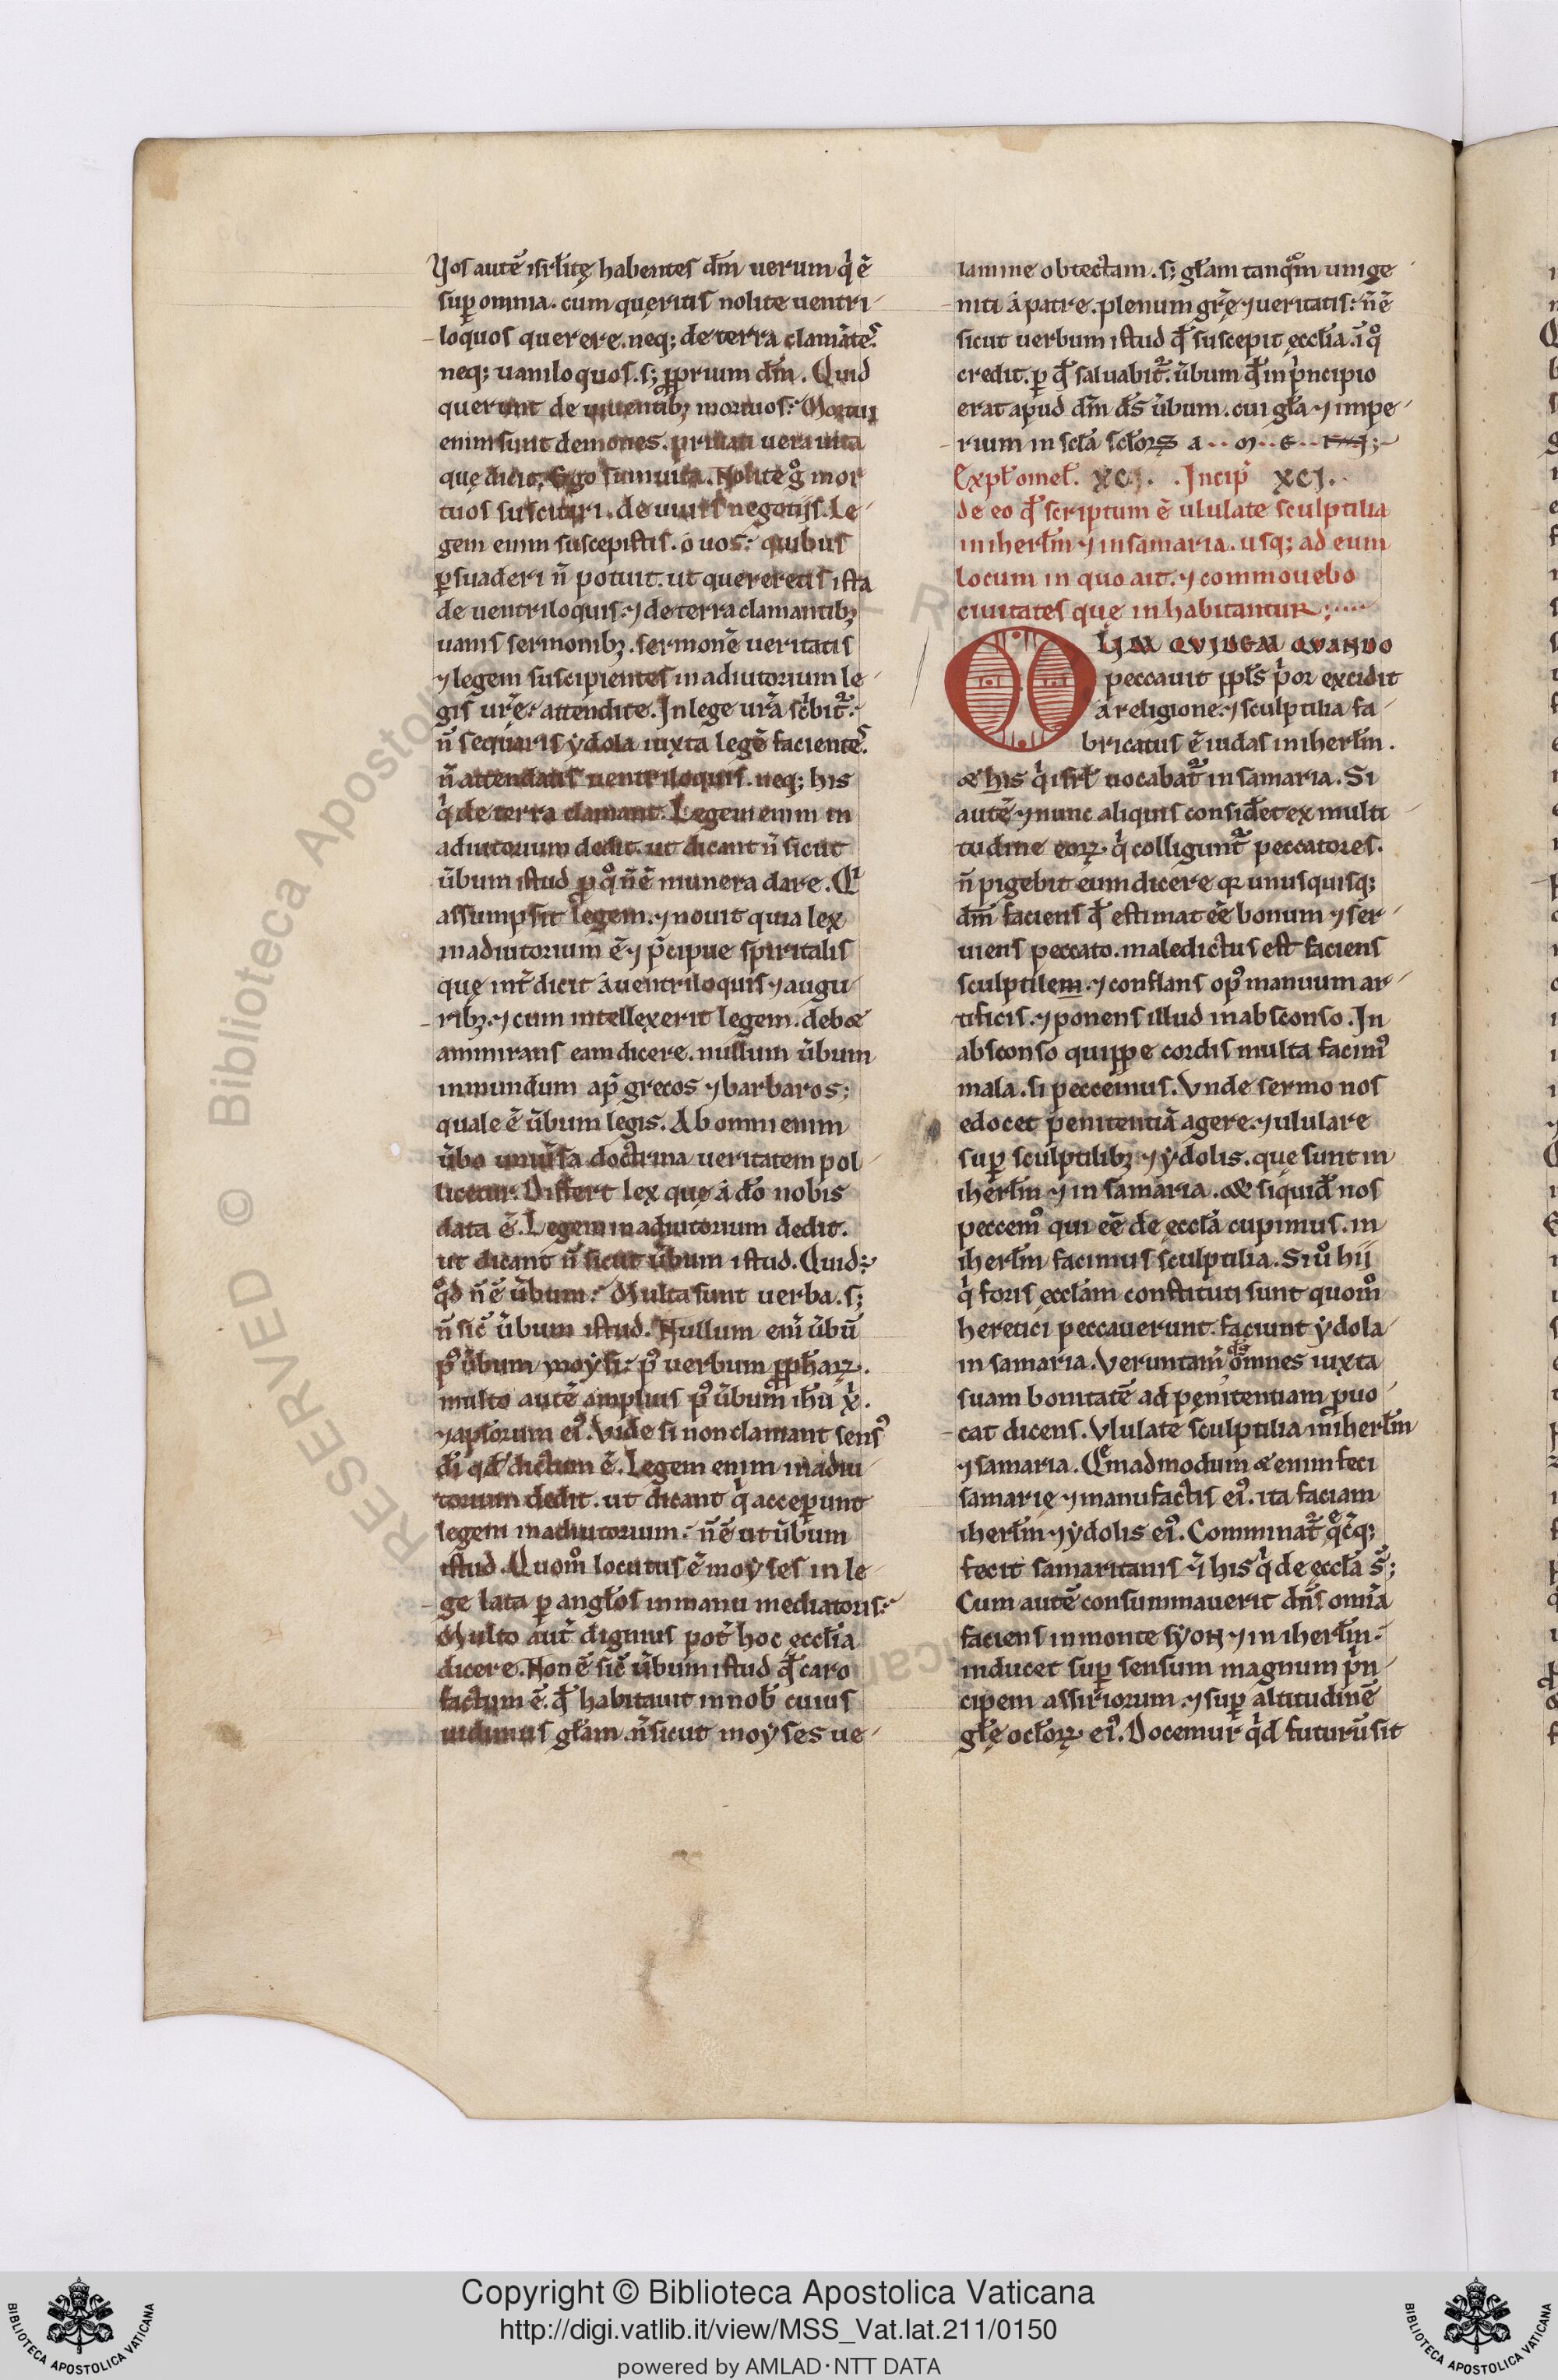 Vos autē isrl̄itę habentes dm̄ uerum q̇ ē
sup̱ omnia. cum quęritis nolite uentri
loquos querere. neq; de terra clamāteˢ.
neq; uaniloquos. s; ꝓprium dm̄. Quid
querunt de uiuentibȝ mortuos: Mortui
enim sunt demones. priuati uera uita
quę dicit. Ego sum uita. Nolite g̊ mor
tuos suscitari. de uiuis negotijs. Le
gem enim suscepistis. o uos: quibus
ꝑsuaderi n̄ potuit. ut quereretis ista
de uentriloquis. ⁊ de terra clamantibȝ
uanis sermonibȝ. sermonē ueritatis
⁊ legem suscipientes in adiutorium le
gis ur̄ę: attendite. In lege ur̄a sc̄bit᷑:
n̄ sequaris ẏdola iuxta legē facienteˢ.
n̄ attendatis uentriloquis. neq; his
q̇ de terra clamant. Legem enim in
adiutorium dedit. ut dicant n̄ sicut
ūbum istud ꝑ q̊ n̄ ē munera dare. Qⁱ
assumpsit legem. ⁊ nouit quia lex
in adiutorium ē ⁊ p̄cipue spiritalis
quę int̄dicit a uentriloquis ⁊ augu
ribȝ. ⁊ cum intellexerit legem. debæ
ammirans eam dicere. nullum ūbum
inmundum ap̄ grecos ⁊ barbaros;
quale ē ūbum legis. Ab omni enim
ūbo uniūsa doctrina ueritatem pol
licetur. Differt lex quę á dō nobis
data ē. Legem in adiutorium dedit.
ut dicant n̄ sicut ūbum istud. Quid:
q̊d n̄ ē ūbum: Multa sunt uerba. s;
n̄ sic̄ ūbum istud. Nullum eni̅ ūbū
pꝰ ūbum moẏsi: pꝰ uerbum ꝓph̄aꝝ.
multo autē amplius pꝰ ūbum ih̄u x̓.
⁊ apl̄orum eiꝰ. Vide si non clamant sensꝰ
dī qđ dictum ē. Legem enim in adiu
torium dedit. ut dicant q̇ acceꝑunt
legem in adiutorium: n̄ ē ut ūbum
istud. Quom̊ locutus ē moẏses in le
ge lata ꝑ angl̄os in manu mediatoris:
Multo aut̄ dignius pot̄ hoc ęccl̄ia
dicere. Non ē sic̄ ūbum istud qđ caro
factum ē. qđ habitauit in nob̄ cuius
uidimus gl̄am. n̄ sicut moẏses ue
lamine obtectam. s; gl̄am tanq̊m unige
niti á patre. plenum gr̄ę ⁊ ueritatis: n̄ ē
sicut uerbum istud qđ suscepit ęccl̄ia. ī q̊
credit. ꝑ qđ saluabit᷑. ūbum qđ in pⁱncipio
erat apud dm̄ ds̄ ūbum. cui gl̄a ⁊ impe
rium in scl̄a scl̄oꝝ a..m.e.n;
Expl̄ omel̄. XCJ. Incip̄ XCJ.
de eo qđ scriptum ē ululate sculptilia
in iherl̄m ⁊ in samaria. usq; ad eum
locum in quo ait. ⁊ commouebo
ciuitates quę inhabitantur;
OLIM QVIDEM QVANDO
peccauit ppl̄s pⁱor excidit
á religione. ⁊ sculptilia fa
bricatus ē iudas in iherl̄m.
æ his q̇ isrl̄ uocabat᷑ in samaria. Si
autē ⁊ nunc aliquis consideret ex multi
tudine eoꝝ. q̇ colligunt᷑ peccatores.
n̄ pigebit eum dicere qꝛ unusquisq;
dm̄ faciens qđ estimat eē bonum ⁊ ser
uiens peccato. maledictus est faciens
sculptilem. ⁊ conflans opꝰ manuum ar
tificis. ⁊ ponens illud in absconso. In
absconso quippe cordis multa facimꝰ
mala. si peccemus. Vnde sermo nos
edocet penitentiā agere. ⁊ ululare
sup̱ sculptilibȝ ⁊ ẏdolis. que sunt in
iherl̄m ⁊ in samaria. æ siquiđ nos
peccemꝰ qui eē de ęccl̄a cupimus. in
iherl̄m facimus sculptilia. Siu̇ hij
q̇ foris ęccl̄am constituti sunt quom̊
heretici peccauerunt. faciunt ẏdola
in samaria. Veruntam̄ omnes iuxta
suam bonitatē ad pęnitentiam ꝓuo
cat dicens. Vlulate sculptilia in iherl̄m
⁊ samaria. Qēmadmodum æenim feci
samarię ⁊ manufactis eiꝰ. ita faciam
iherl̄m ⁊ ẏdolis eiꝰ. Comminat᷑ q̄cq;
fecit samaritanis ⁊ his q̇ de ęccl̄a s̄;
Cum autē consummauerit dn̄s omīa
faciens in monte sẏon ⁊ in iherl̄m:
inducet sup̱ sensum magnum pⁱn
cipem assiriorum ⁊ sup̱ altitudinē
gl̄ę ocl̄oꝝ eiꝰ. Docemur q̇d futurū sit
Copyright © Biblioteca Apostolica Vaticana
http://digi.vatlib.it/view/MSS_Vat.lat.211/0150
powered by AMLAD·NTT DATA
BIBLIOTECA APOSTOLICA VATICANA
BIBLIOTECA APOSTOLICA VATICANA